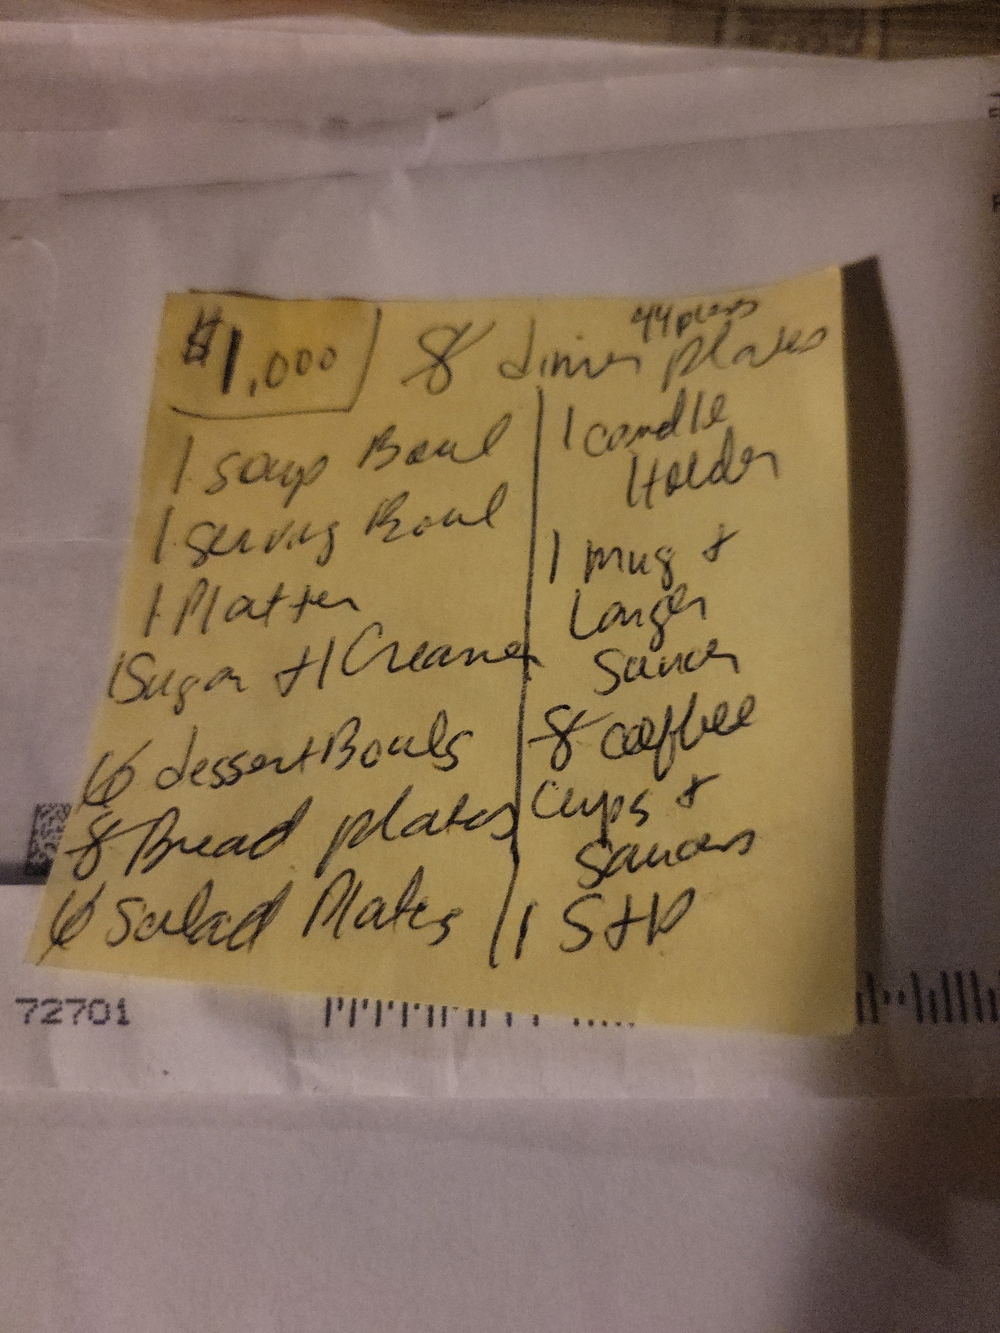 $1,000
44 pieces
8 dinner plates
1 Soup Bowl
1 Serving Bowl
1 Platter
1 Sugar + 1 Creamer
6 dessert Bowls
8 Bread plates
6 Salad Plates
1 candle
Holder
1 mug +
Larger
Saucer
8 coffee
cups +
saucers
1 S+P
72701